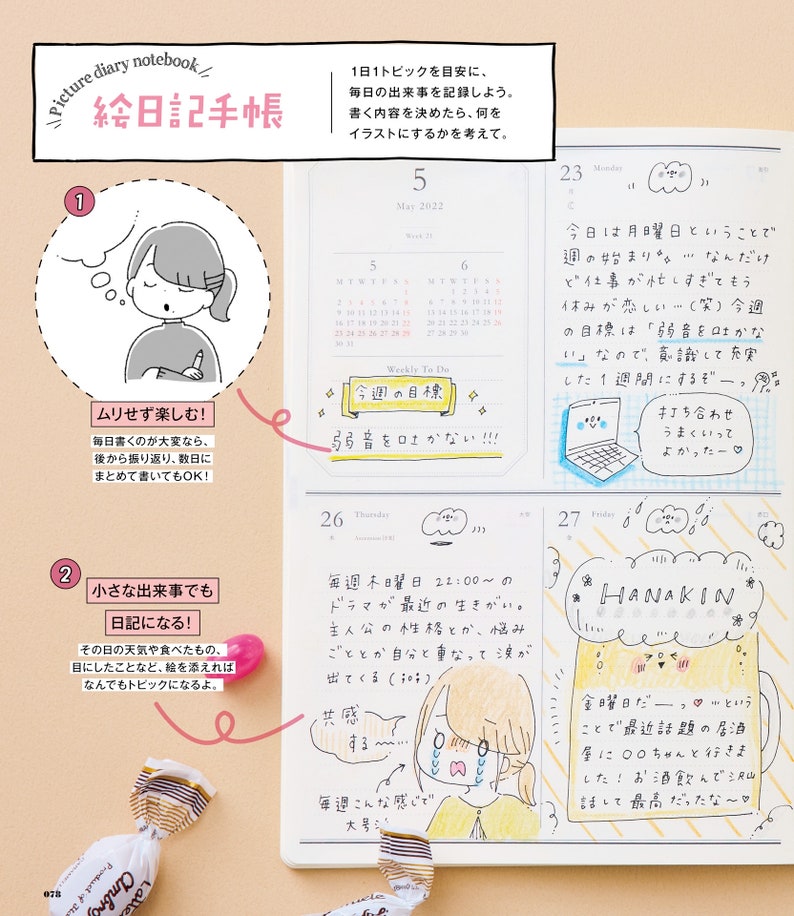 Picture diary notebook
絵日記手帳
1日1トピックを目安に、
毎日の出来事を記録しよう。
書く内容を決めたら、何を
イラストにするかを考えて。
1
ムリせず楽しむ！
毎日書くのが大変なら、
後から振り返り、数日に
まとめて書いてもOK！
2
小さな出来事でも
日記になる！
その日の天気や食べたもの、
目にしたことなど、絵を添えれば
なんでもトピックになるよ。
5
May 2022
Week 21
5
M T W T F S S
1
2 3 4 5 6 7 8
9 10 11 12 13 14 15
16 17 18 19 20 21 22
23 24 25 26 27 28 29
30 31
6
M T W T F S S
1 2 3 4 5
6 7 8 9 10 11 12
13 14 15 16 17 18 19
20 21 22 23 24 25 26
27 28 29 30
Weekly To Do
今週の目標
弱音を吐かない!!!
23 Monday
月
今日は月曜日ということで
週の始まり … なんだけ
ど仕事が忙しすぎてもう
休みが恋しい…(笑)今週
の目標は「弱音を吐かな
い」なので、意識して充実
した1週間にするぞーっ
打ち合わせ
うまくいって
よかったー♡
26 Thursday
木
毎週木曜日22:00〜の
ドラマが最近の生きがい。
主人公の性格とか、悩み
ごととか自分と重なって涙が
出てくる(;o;)
共感
する〜…
毎週こんな感じで
大号
27 Friday
金
HANAKIN
金曜日だーっ♥…という
ことで最近話題の居酒
屋に〇〇ちゃんと行きま
した！お酒飲んで沢山
話して最高だったな〜♡
078
Product of